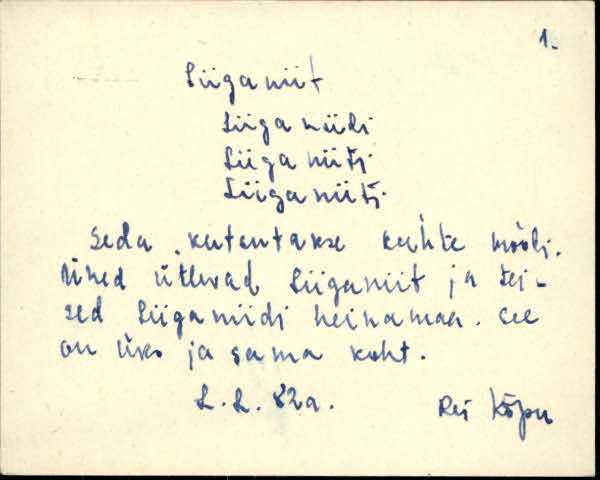 1.
Siiganiit
Siiganiidi
Siiganiiti
Siiganiiti
Seda kutsutakse kahte moodi.
Ühed ütlevad Siiganiit ja tei-
sed Siiganiidi heinamaa. See
on üks ja sama koht.
L. L. 82a. Rei Kõpu